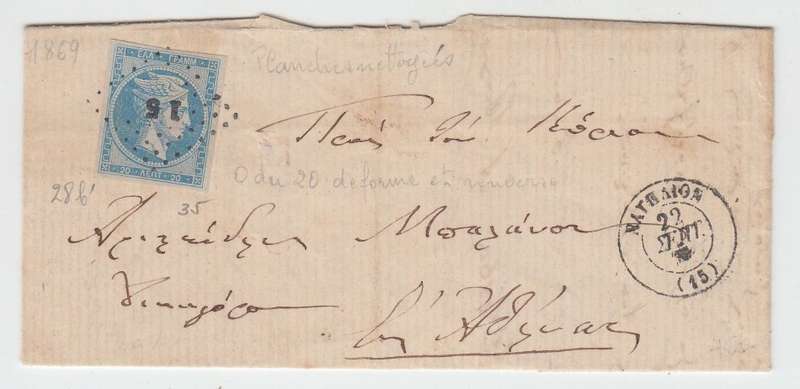 1869
ΕΛΛ. ΓΡΑΜΜ.
15
20 ΛΕΠΤ. 20
Planches nettoyés
Πρὸς τὸν Κύριον
0 du 20 déformé et
28b'
35
Ἀριστείδην Μπαλάνον
Δικηγόρον
Εἰς Ἀθήνας
ΝΑΥΠΛΙΟΝ
22
ΣΕΠΤ.
(15)